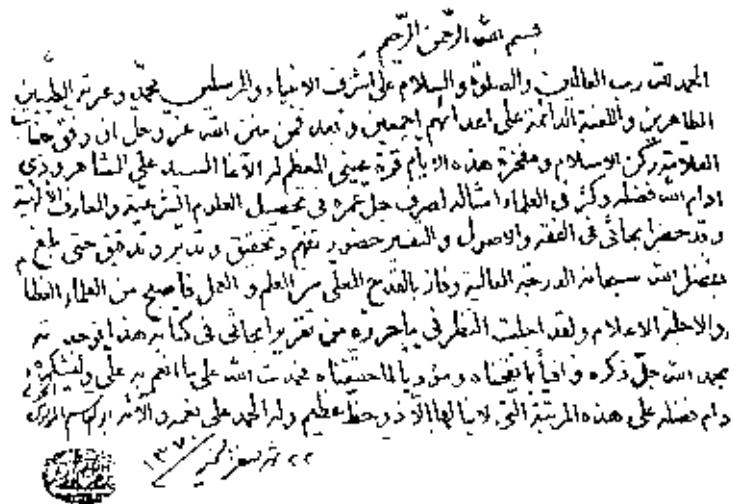 بسم الله الرحمن الرحيم
الحمد لله رب العالمين والصلوة والسلام على اشرف الانبياء والمرسلين محمد وعترته الطيبين
الطاهرين واللعنة الدائمة على اعدائهم اجمعين وبعد فمن منن الله عز وجل ان وفق جناب
العلامة ركن الاسلام ومفخرة هذه الايام قرة عيني المعظم له الآغا السيد علي الشاهرودي
ادام الله فضله وكثر في العلماء امثاله لصرف جل عمره في تحصيل العلوم الشرعية والمعارف الالهية
وقد حضر ابحاثي في الفقه والاصول والتفسير حضور تفهم وتحقيق وتدبر وتدقيق حتى بلغ
بفضل الله سبحانه الدرجة العالية وفاز بالقدح المعلى من العلم والعمل فاصبح من العلماء العظام
والاجلة الاعلام ولقد اجلت النظر في ما حرره من تقرير ابحاثي في كتابه هذا فوجدته
بحمد الله جل ذكره وافياً بما نقحناه ومؤدياً لما حققناه فحمدت الله على ما انعم به علي وليشكره
دام فضله على هذه المرتبة التي لا ينالها الا ذو حظ عظيم وله الحمد على نعمه والآئه ابو القاسم الموسوي الخوئي
٢٢ شهر ١٣٧٠